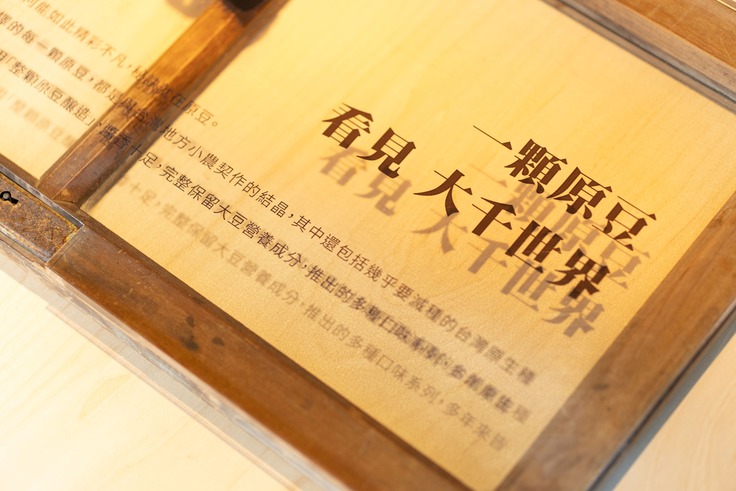 一顆原豆
看見 大千世界
可能如此精彩不凡,
擇的每一顆原豆,都是與在地
原豆。
地方小農契作的結晶,其中還包括幾乎要滅種的台灣原生種
用「整顆原豆釀造」
十足,完整保留大豆營養成分,推出的多種口味系列,